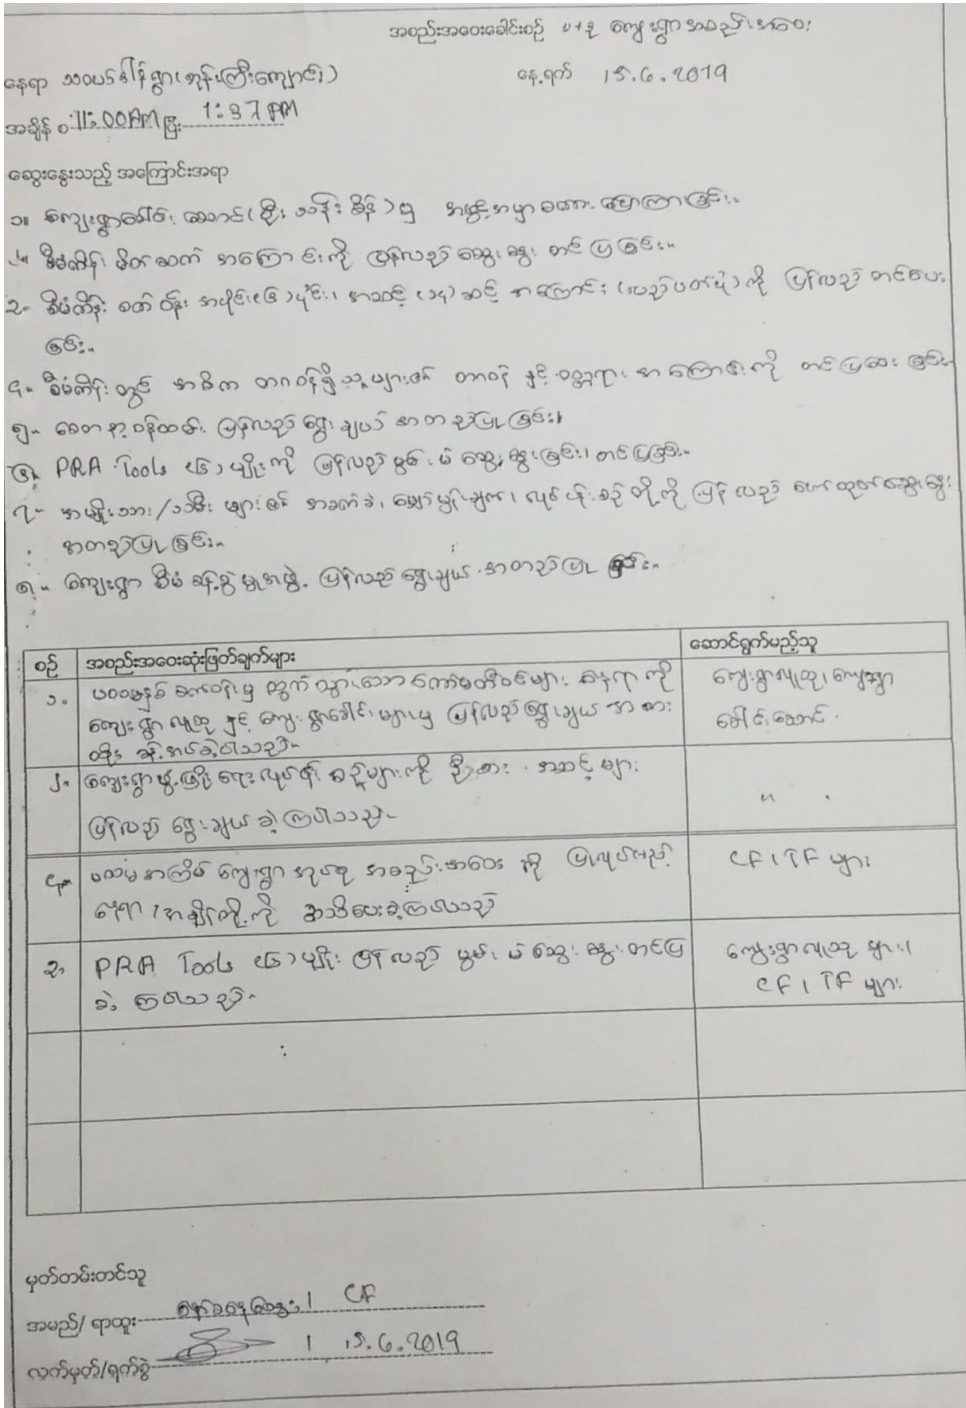 အစည်းအဝေးခေါင်းစဉ် ပ+ဒု ကျေးရွာအစည်းအဝေး
နေရာ သပြေခါန်ရွာ (ဘုန်းကြီးကျောင်း) နေ့ရက် 15.6.2019
အချိန် စ 11:00AM ပြီး 1:37 PM
ဆွေးနွေးသည့် အကြောင်းအရာ
၁။ ကျေးရွာခေါင်းဆောင် (ဦးသန်းစိန်) မှ အဖွင့်အမှာစကား ပြောကြားခြင်း။
၂။ စီမံကိန်း မိတ်ဆက် အကြောင်းကို ပြန်လည်ဆွေးနွေး တင်ပြခြင်း။
၃။ စီမံကိန်း စက်ဝန်း အပိုင်း (၆) ပိုင်း၊ အဆင့် (၁၄) ဆင့် အကြောင်း (လည်ပတ်ပုံ) ကို ပြန်လည် တင်ပြပေး
ခြင်း။
၄။ စီမံကိန်းတွင် အဓိက တာဝန်ရှိသူများ၏ တာဝန် နှင့် ဝတ္တရား အကြောင်းကို တင်ပြဆွေးနွေးခြင်း။
၅။ စေတနာ့ဝန်ထမ်း ပြန်လည်ရွေးချယ် အတည်ပြုခြင်း။
၆။ PRA Tools (၆) မျိုးကို ပြန်လည်မွမ်းမံဆွေးနွေးခြင်း၊ တင်ပြခြင်း။
၇။ အမျိုးသား/သမီးများ၏ အခက်ခဲ၊ မျှော်မှန်းချက်၊ လုပ်ငန်းစဉ်တို့ကို ပြန်လည် ဖော်ထုတ်ဆွေးနွေး
အတည်ပြုခြင်း။
၈။ ကျေးရွာ စီမံခန့်ခွဲမှုအဖွဲ့ ပြန်လည်ရွေးချယ် အတည်ပြုခြင်း။
စဉ် အစည်းအဝေးဆုံးဖြတ်ချက်များ ဆောင်ရွက်မည့်သူ
၁. ပထမနှစ် စက်ဝန်းမှ ထွက်သွားသော ကော်မတီဝင်များ နေရာကို ကျေးရွာလူထု၊ ကျေးရွာ
ကျေးရွာလူထု နှင့် ကျေးရွာခေါင်းများမှ ပြန်လည်ရွေးချယ် အစား ခေါင်းဆောင်
ထိုး ခန့်အပ်ခဲ့ပါသည်။
၂. ကျေးရွာဖွံ့ဖြိုးရေးလုပ်ငန်းစဉ်များကို ဦးစားအဆင့်များ
ပြန်လည်ရွေးချယ်ခဲ့ကြပါသည်။ " "
၄. ပထမအကြိမ် ကျေးရွာအုပ်စု အစည်းအဝေးကို ပြုလုပ်မည့် CF၊ TF များ
နေရာ၊ အချိန်တို့ကို အသိပေးခဲ့ကြပါသည်
၃. PRA Tools (၆) မျိုး ပြန်လည်မွမ်းမံဆွေးနွေးတင်ပြ ကျေးရွာလူထုများ၊
ခဲ့ကြပါသည်။ CF၊ TF များ
မှတ်တမ်းတင်သူ
အမည်/ ရာထူး CF
လက်မှတ်/ရက်စွဲ 15.6.2019